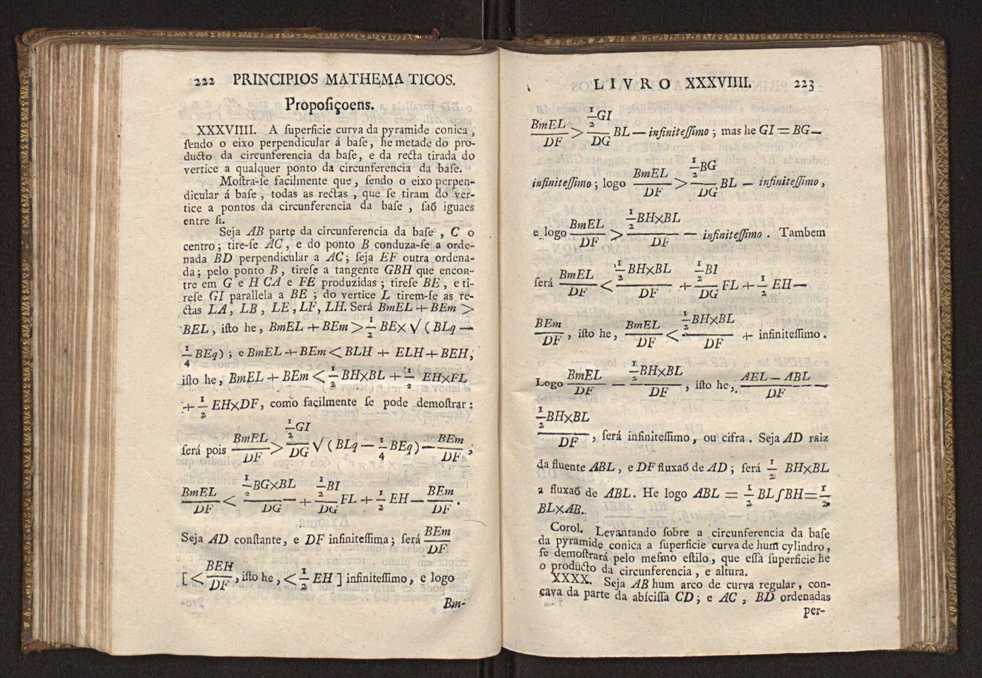 222 PRINCIPIOS MATHEMA TICOS.
Proposiçoens.
XXXVIIII. A superficie curva da pyramide conica,
sendo o eixo perpendicular á base, he metade do pro-
ducto da circunferencia da base, e da recta tirada do
vertice a qualquer ponto da circunferencia da base.
Mostra-se facilmente que, sendo o eixo perpen-
dicular á base, todas as rectas, que se tiram do ver-
tice a pontos da circunferencia da base, saõ iguaes
entre si.
Seja AB parte da circunferencia da base, C o
centro; tire-se AC, e do ponto B conduza-se a orde-
nada BD perpendicular a AC; seja EF outra ordena-
da; pelo ponto B, tirese a tangente GBH que encon-
tre em G e H CA e FE produzidas; tirese BE, e ti-
rese GI parallela a BE; do vertice L tirem-se as re-
ctas LA, LB, LE, LF, LH. Será BmEL + BEm >
BEL, isto he, BmEL + BEm > 1/2 BE × √ (BLq —
1/4 BEq); e BmEL + BEm < BLH + ELH + BEH,
isto he, BmEL + BEm < 1/2 BH×BL + 1/2 EH×FL
+ 1/2 EH×DF, como facilmente se pode demostrar:
será pois BmEL/DF > 1/2 GI/DG √ (BLq — 1/4 BEq) — BEm/DF,
BmEL/DF < 1/2 BG×BL/DG + 1/2 BI/DG FL + 1/2 EH — BEm/DF.
Seja AD constante, e DF infinitessima; será BEm/DF
[< BEH/DF, isto he, < 1/2 EH] infinitessimo, e logo
Bm-
LIVRO XXXVIIII. 223
BmEL/DF > 1/2 GI/DG BL — infinitessimo; mas he GI = BG—
infinitessimo; logo BmEL/DF > 1/2 BG/DG BL — infinitessimo,
e logo BmEL/DF > 1/2 BH×BL/DF — infinitessimo. Tambem
será BmEL/DF < 1/2 BH×BL/DF + 1/2 BI/DG FL + 1/2 EH —
BEm/DF, isto he, BmEL/DF < 1/2 BH×BL/DF + infinitessimo.
Logo BmEL/DF — 1/2 BH×BL/DF, isto he, AEL — ABL/DF —
1/2 BH×BL/DF, será infinitessimo, ou cifra. Seja AD raiz
da fluente ABL, e DF fluxaõ de AD; será 1/2 BH×BL
a fluxaõ de ABL. He logo ABL = 1/2 BL ∫ BH = 1/2
BL×AB.
Corol. Levantando sobre a circunferencia da base
da pyramide conica a superficie curva de hum cylindro,
se demostrará pelo mesmo estilo, que essa superficie he
o producto da circunferencia, e altura.
XXXX. Seja AB hum arco de curva regular, con-
cava da parte da abscissa CD; e AC, BD ordenadas
per-